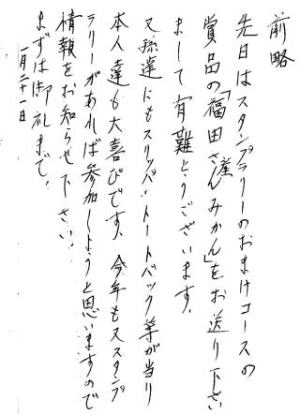 前略
先日はスタンプラリーのおまけコースの
賞品の「福田さん産みかん」をお送り下さい
まして有難とうございます。
又孫達にもスリッパ・トートバック等が当り
本人達も大喜びです。今年もススタンプ
ラリーがあれば参加しようと思いますので
情報をお知らせ下さい。
まずは御礼まで。
一月二十一日